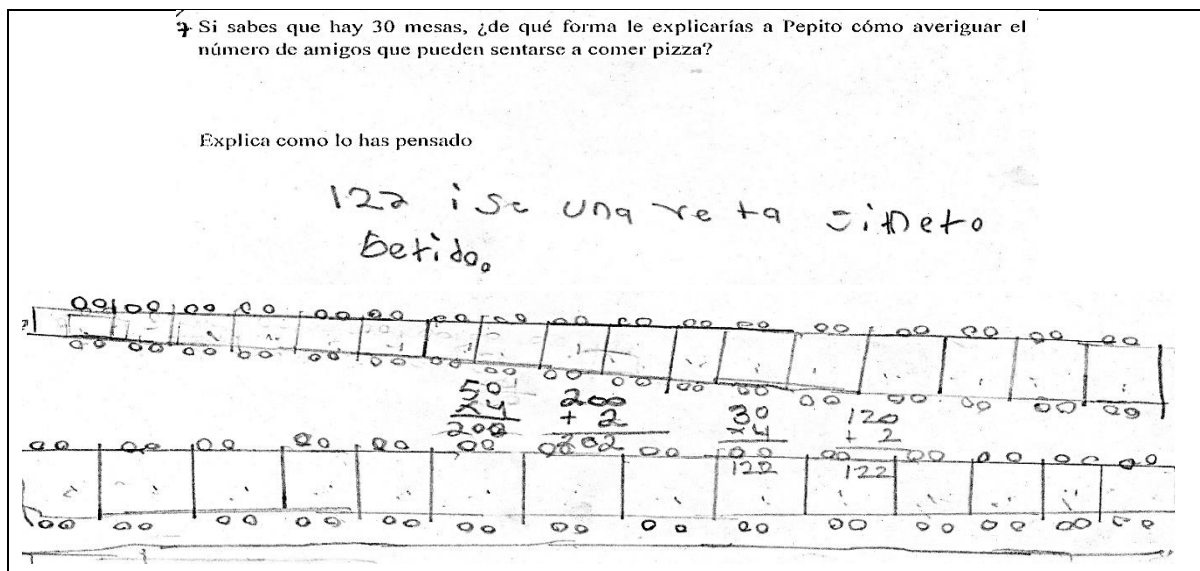 7 Si sabes que hay 30 mesas, ¿de qué forma le explicarías a Pepito cómo averiguar el
número de amigos que pueden sentarse a comer pizza?
Explica como lo has pensado
122 i Se una re ta
betido.
50
x 4
200
200
+ 2
202
30
x 4
122
120
+ 2
122